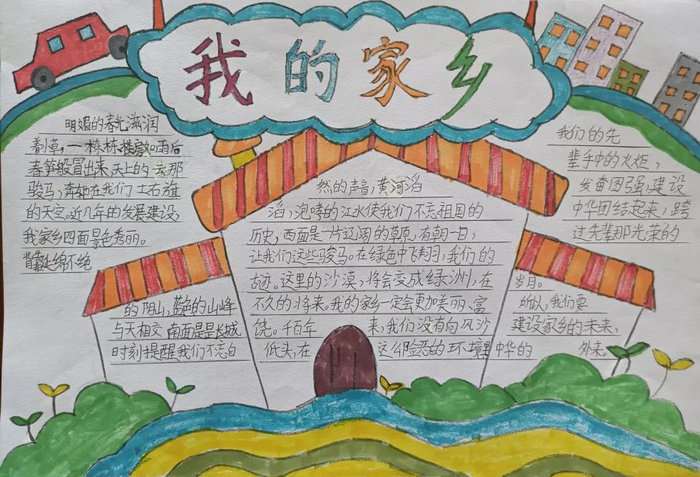 我的家乡
明媚的春光滋润
着小草,一栋栋楼房如雨后
春笋般冒出来,天上的云那
骏马,奔驰在我们土右旗
的天空。近几年的发展建设,
我家乡四面景色秀丽。
背靠绵绵不绝
的阴山,蓝色的山峰
与天相交,南面是长城
时刻提醒我们不忘自
然的声音,黄河滔
滔,泡哮的江水使我们不忘祖国的
历史,西面是一片辽阔的草原,有朝一日,
让我们这些骏马,在绿色中飞翔,我们的
故迹。这里的沙漠,将会变成绿洲,在
不久的将来,我的家一定会更加美丽、富
饶。千百年 来,我们没有向风沙
低头,在 这个险恶的环境里
我们的先
辈手中的火炬,
发奋图强,建设
中华团结起来,跨
过先辈那光荣的
岁月。
所以,我们要
建设家乡的未来,
中华的 外来。